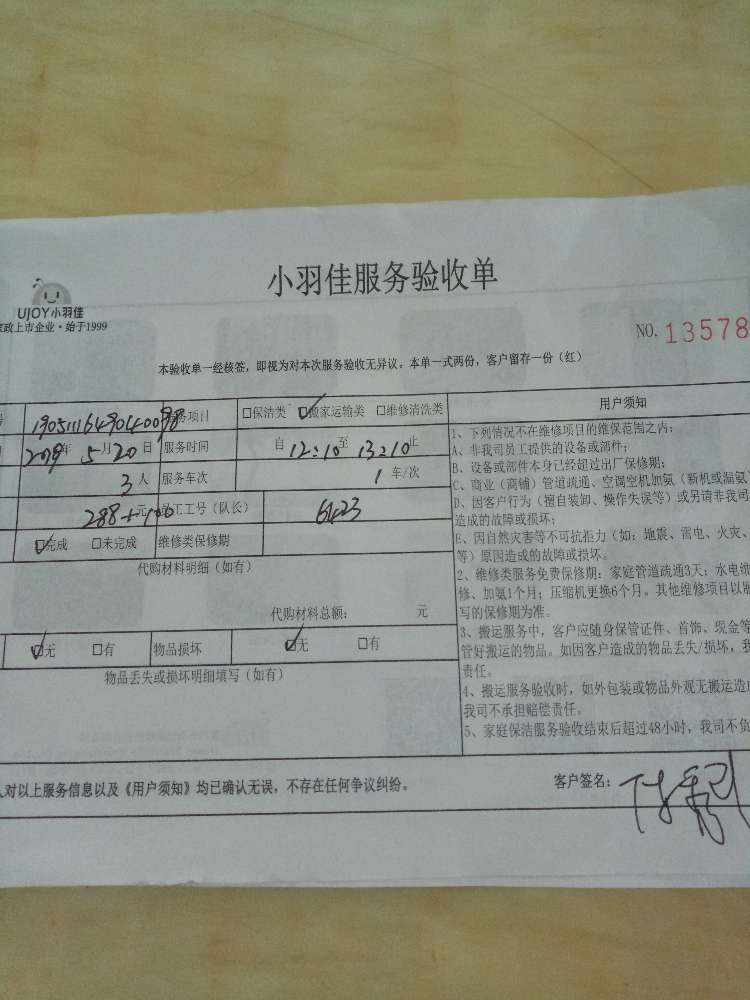 小羽佳服务验收单
UJOY小羽佳
家政上市企业·始于1999
NO. 13578
本验收单一经核签，即视为对本次服务验收无异议。本单一式两份，客户留存一份（红）
号 服务项目 □保洁类 ☑搬家运输类 □维修清洗类 用户须知
2019年 5月20日 服务时间 自 12:10 至 13:10 止
3人 服务车次 1 车/次
288+100 元 员工工号（队长） 6423
☑完成 □未完成 维修类保修期
代购材料明细（如有）
代购材料总额： 元
☑无 □有 物品损坏 ☑无 □有
物品丢失或损坏明细填写（如有）
1、下列情况不在维修项目的维保范围之内：
A、非我司员工提供的设备或部件；
B、设备或部件本身已经超过出厂保修期；
C、商业（商铺）管道疏通、空调空机加氨（新机或漏氨
D、因客户行为（擅自装卸、操作失误等）或另请非我司
造成的故障或损坏；
E、因自然灾害等不可抗拒力（如：地震、雷电、火灾、
等）原因造成的故障或损坏。
2、维修类服务免费保修期：家庭管道疏通3天；水电维
修、加氨1个月；压缩机更换6个月。其他维修项目以
写的保修期为准。
3、搬运服务中，客户应随身保管证件、首饰、现金等
管好搬运的物品。如因客户造成的物品丢失/损坏，我
责任。
4、搬运服务验收时，如外包装或物品外观无搬运造
我司不承担赔偿责任。
5、家庭保洁服务验收结束后超过48小时，我司不负
人对以上服务信息以及《用户须知》均已确认无误，不存在任何争议纠纷。 客户签名：